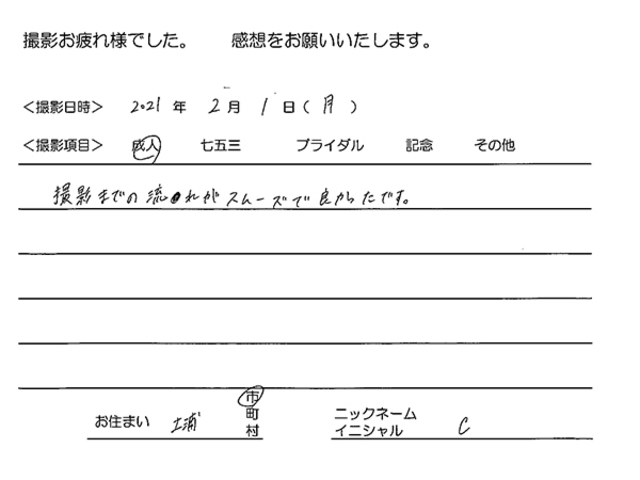 撮影お疲れ様でした。 感想をお願いいたします。
＜撮影日時＞ 2021 年 2 月 1 日（ 月 ）
＜撮影項目＞ 成人 七五三 ブライダル 記念 その他
撮影までの流れがスムーズで良かったです。
お住まい 土浦 市 町 村
ニックネーム
イニシャル C